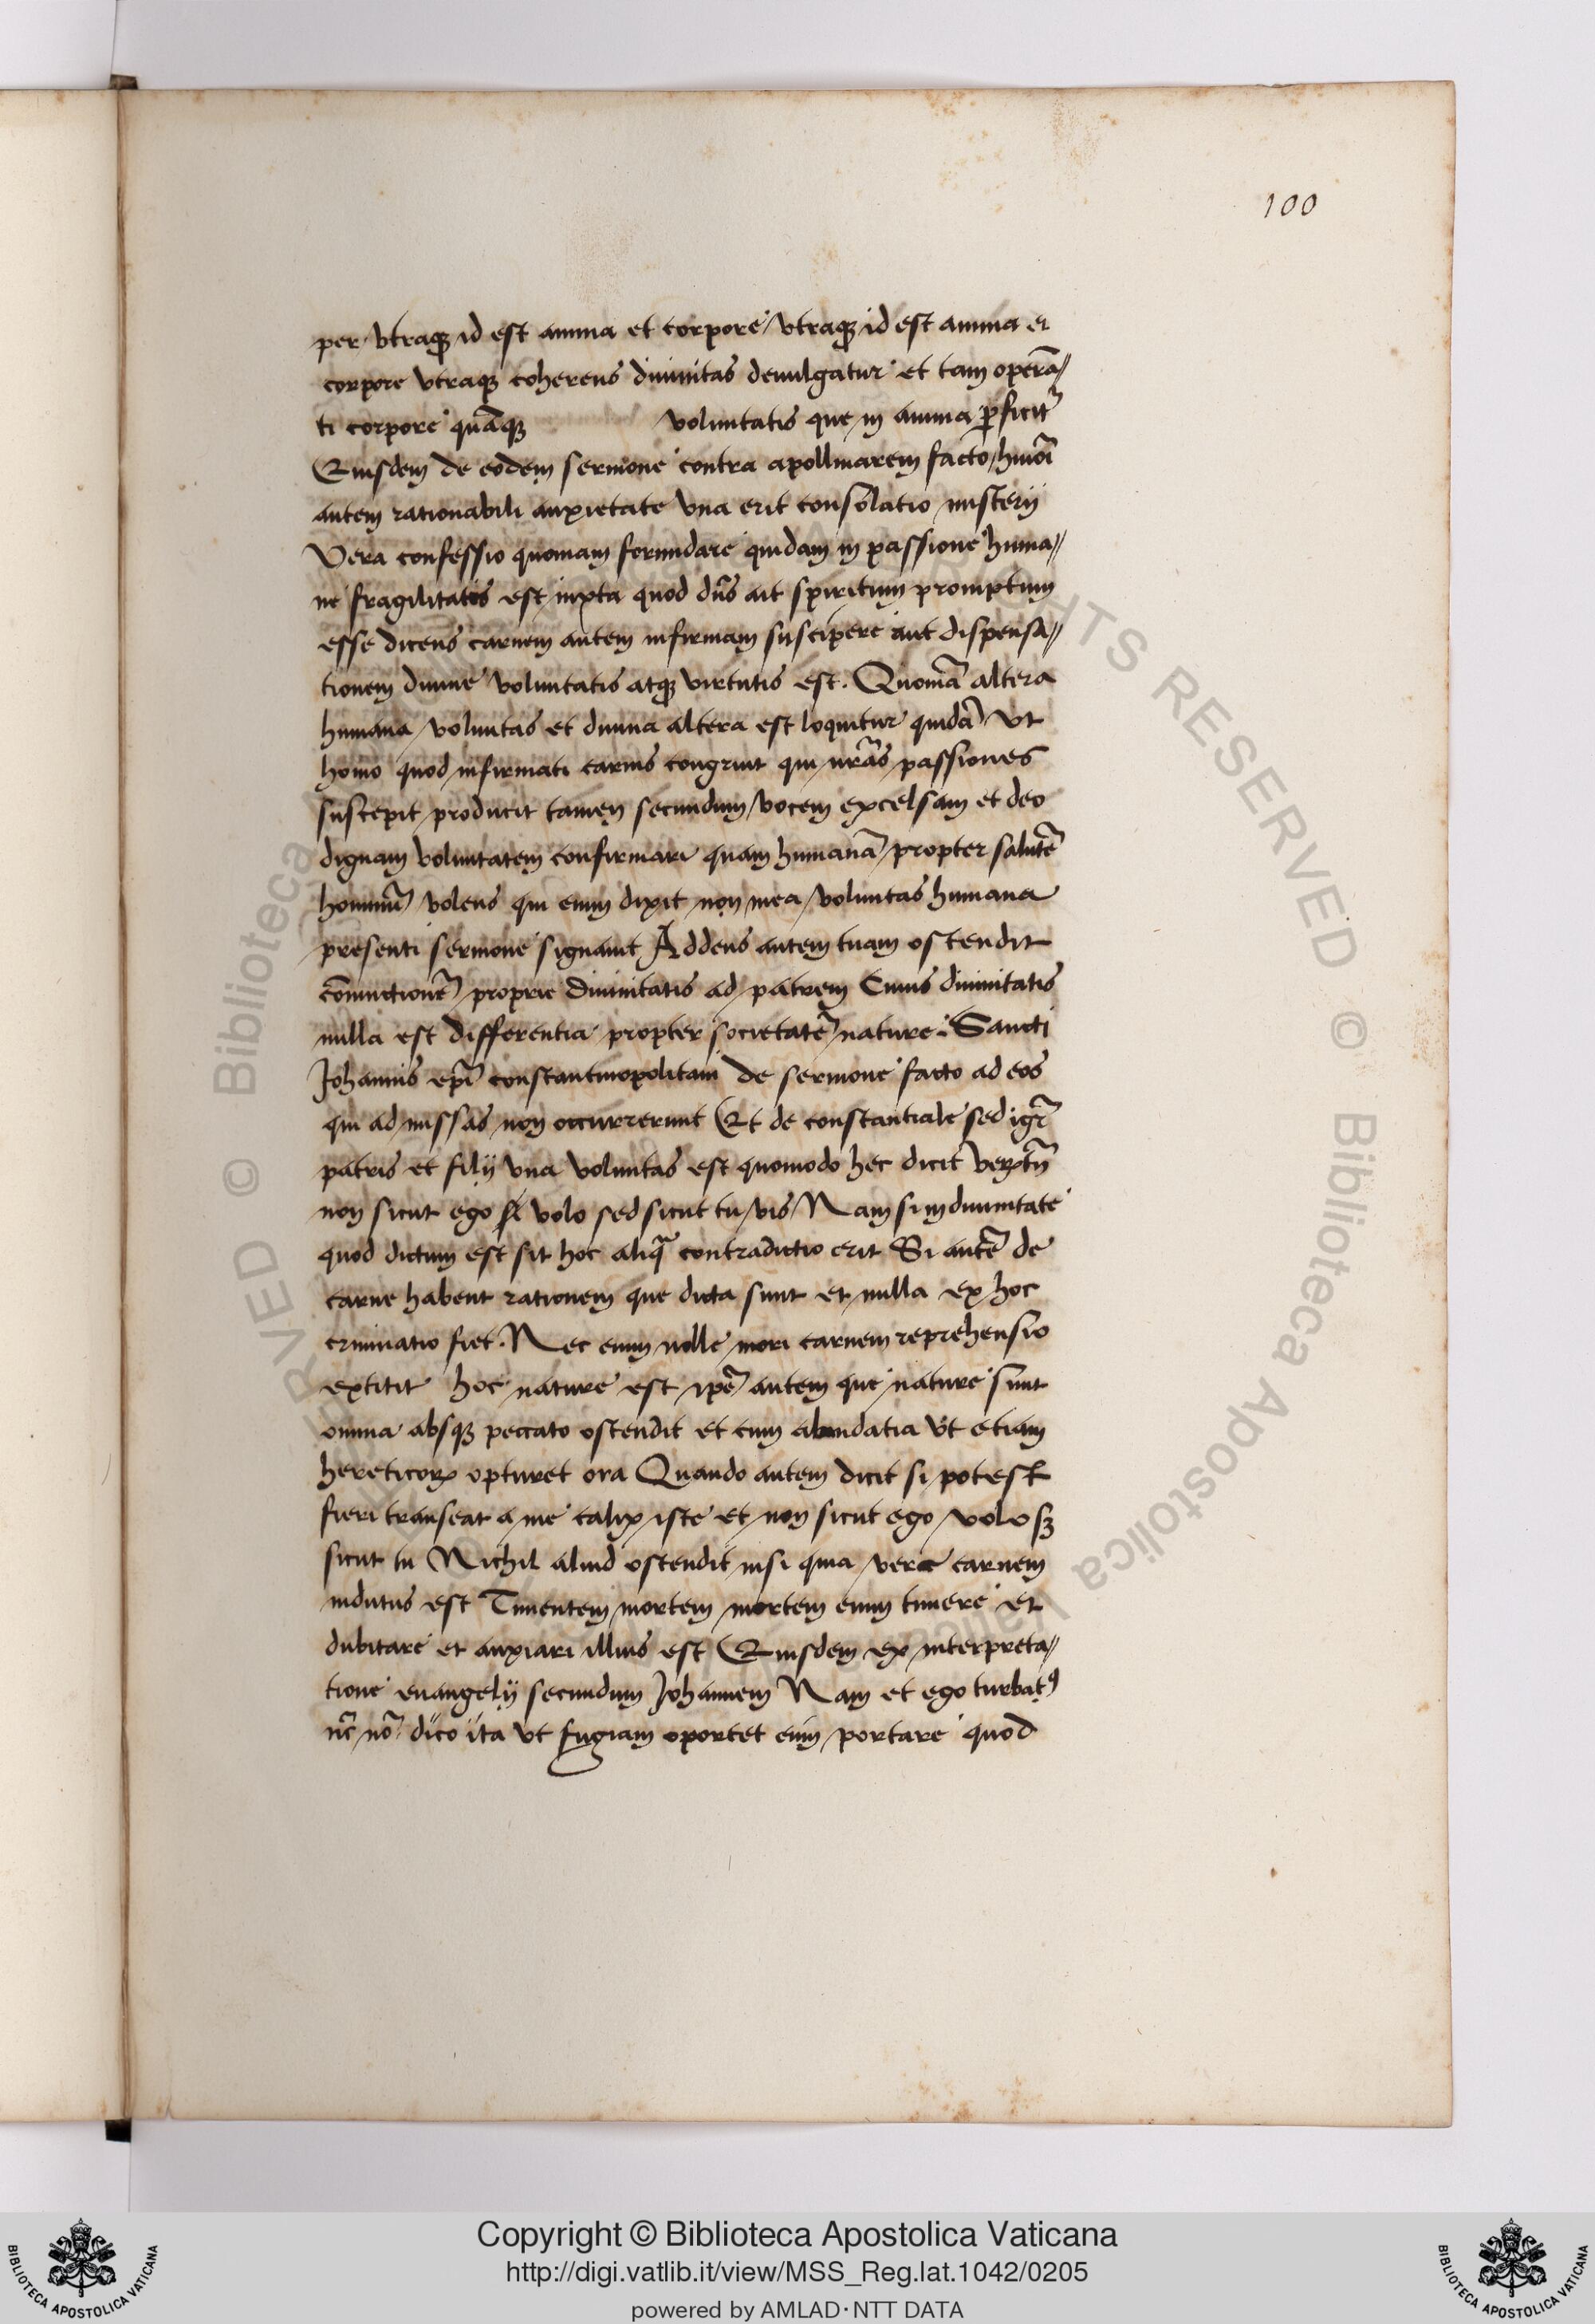 100
per vtraqꝫ id est anima et corpore vtraqꝫ id est anima et
corpore vtraqꝫ coherens diuinitas deuulgatur et tam operā//
ti corpore quāqꝫ voluntatis que in anima ꝑficit᷑
Eiusdem de eodem sermone contra apollinarem facto hmōi
autem rationabili anxietate vna erit consolatio misterij
Vera confessio quoniam formidare quidam in passione huma//
ne fragilitatis est iuxta quod dn̄s ait spiritum promptum
esse dicens carnem autem infirmam suscipere aut dispensa//
tionem diuine voluntatis atqꝫ virtutis est. Quoniā altera
humana voluntas et diuina altera est loquitur quidā vt
homo quod infirmati carnis congruit qui nr̄as passiones
suscepit producit tamen secundum vocem excelsam et deo
dignam voluntatem confirmari quam humanā propter salutē
hominū volens qui enim dixit non mea voluntas humana
presenti sermone signauit Addens autem tuam ostendit
cōiunctionē proprie diuinitatis ad patrem Cuius diuinitatis
nulla est differentia propter societatē nature. Sancti
Johannis ep̄i constantinopolitani de sermone facto ad eos
qui ad missas non occurrerunt Et de constantiale sed igr̄
patris et filij vna voluntas est quomodo hec dicit
non sicut ego volo sed sicut tu vis Nam si in diuinitate
quod dictum est sit hoc aliq̄ contradictio erit Si autē de
carne habent rationem que dicta sunt et nulla ex hoc
criminatio fiet. Nec enim nolle mori carnem reprehensio
extitit hoc nature est ip̄e autem que nature sunt
omnia absqꝫ peccato ostendit et cum abundatia vt etiam
hereticoꝝ opturet ora Quando autem dicit si potest
fieri transeat a me calix iste et non sicut ego volo sꝫ
sicut tu Nichil aliud ostendit nisi quia vere carnem
indutus est Timentem mortem mortem enim timere et
dubitare et anxiari illius est Eiusdem ex interpreta//
tione euangelij secundum Johannem Nam et ego turbatꝰ
nc̄ nō dico ita vt fugiam oportet enim portare quod
Copyright © Biblioteca Apostolica Vaticana
http://digi.vatlib.it/view/MSS_Reg.lat.1042/0205
powered by AMLAD·NTT DATA
BIBLIOTECA APOSTOLICA VATICANA
BIBLIOTECA APOSTOLICA VATICANA